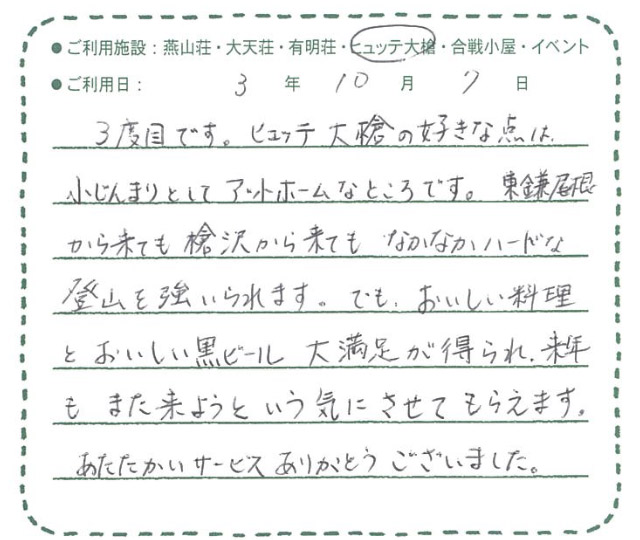 ●ご利用施設：燕山荘・大天荘・有明荘・ヒュッテ大槍・合戦小屋・イベント
●ご利用日： 3 年 10 月 7 日
3度目です。ヒュッテ大槍の好きな点は、
小じんまりとしてアットホームなところです。東鎌尾根
から来ても槍沢から来てもなかなかハードな
登山を強いられます。でも、おいしい料理
とおいしい黒ビール 大満足が得られ、来年
もまた来ようという気にさせてもらえます。
あたたかいサービスありがとうございました。